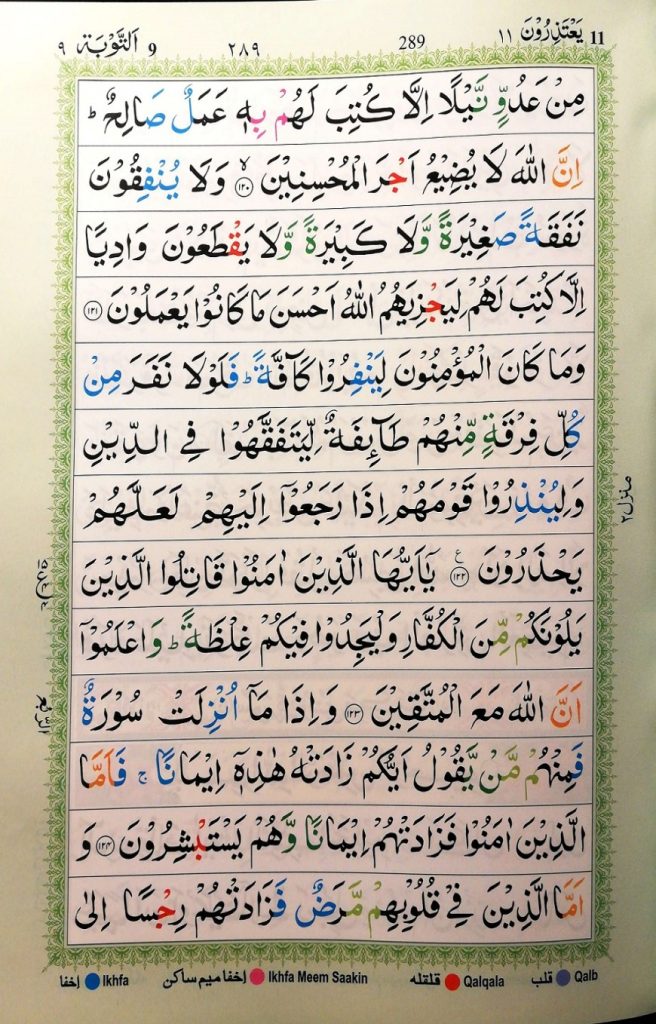 يَعْتَذِرُوْنَ ١١ 11
289
٢٨٩
اَلتَّوْبَة 9 ٩
مِنْ عَدُوٍّ نَّيْلًا اِلَّا كُتِبَ لَهُمْ بِهٖ عَمَلٌ صَالِحٌ ؕ
اِنَّ اللّٰهَ لَا يُضِيْعُ اَجْرَ الْمُحْسِنِيْنَ ۙ﴿۱۲۰﴾ وَلَا يُنْفِقُوْنَ
نَفَقَةً صَغِيْرَةً وَّلَا كَبِيْرَةً وَّلَا يَقْطَعُوْنَ وَادِيًا
اِلَّا كُتِبَ لَهُمْ لِيَجْزِيَهُمُ اللّٰهُ اَحْسَنَ مَا كَانُوْا يَعْمَلُوْنَ ﴿۱۲۱﴾
وَمَا كَانَ الْمُؤْمِنُوْنَ لِيَنْفِرُوْا كَآفَّةً ؕ فَلَوْلَا نَفَرَ مِنْ
كُلِّ فِرْقَةٍ مِّنْهُمْ طَآئِفَةٌ لِّيَتَفَقَّهُوْا فِي الدِّيْنِ
وَلِيُنْذِرُوْا قَوْمَهُمْ اِذَا رَجَعُوْۤا اِلَيْهِمْ لَعَلَّهُمْ
يَحْذَرُوْنَ ﴿۱۲۲﴾ ع يٰۤاَيُّهَا الَّذِيْنَ اٰمَنُوْا قَاتِلُوا الَّذِيْنَ
يَلُوْنَكُمْ مِّنَ الْكُفَّارِ وَلْيَجِدُوْا فِيْكُمْ غِلْظَةً ؕ وَاعْلَمُوْۤا
اَنَّ اللّٰهَ مَعَ الْمُتَّقِيْنَ ﴿۱۲۳﴾ وَاِذَا مَاۤ اُنْزِلَتْ سُوْرَةٌ
فَمِنْهُمْ مَّنْ يَّقُوْلُ اَيُّكُمْ زَادَتْهُ هٰذِهٖۤ اِيْمَانًا ۚ فَاَمَّا
الَّذِيْنَ اٰمَنُوْا فَزَادَتْهُمْ اِيْمَانًا وَّهُمْ يَسْتَبْشِرُوْنَ ﴿۱۲۴﴾ وَ
اَمَّا الَّذِيْنَ فِيْ قُلُوْبِهِمْ مَّرَضٌ فَزَادَتْهُمْ رِجْسًا اِلٰى
منزل ٢
Qalb قلب
Qalqala قلقله
Ikhfa Meem Saakin إخفا ميم ساكن
Ikhfa إخفا